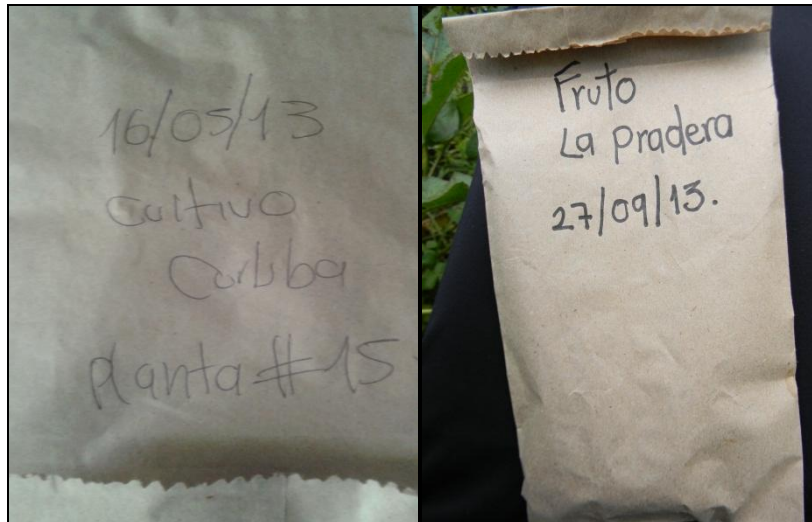 16/05/13
Cultivo
Curubba
Planta #15
Fruto
La Pradera
27/09/13.